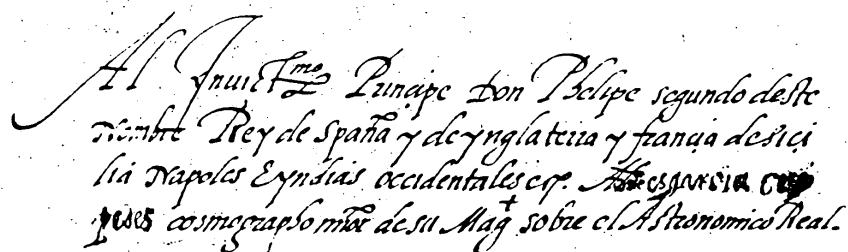 Al Inuict^mo Principe Don Phelipe segundo deste
Nombre Rey de Spaña y de ynglaterra y francia de sici
lia Napoles E yndias occidentales etc.
cosmographo mor de su Mag^t sobre el Astronomico Real.